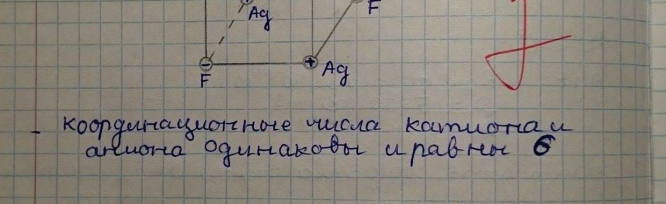 Ag
F
F
Ag
- координационные числа катиона и
аниона одинаковы и равны 6